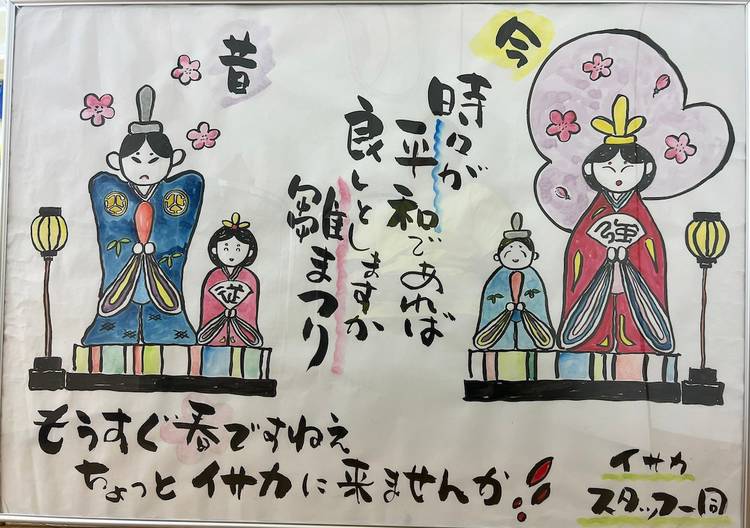 今
強
時々が
平和であれば
良しとしますか
雛まつり
昔
従
もうすぐ春ですねえ
ちょっとイサカに来ませんか!!
イサカ
スタッフ一同